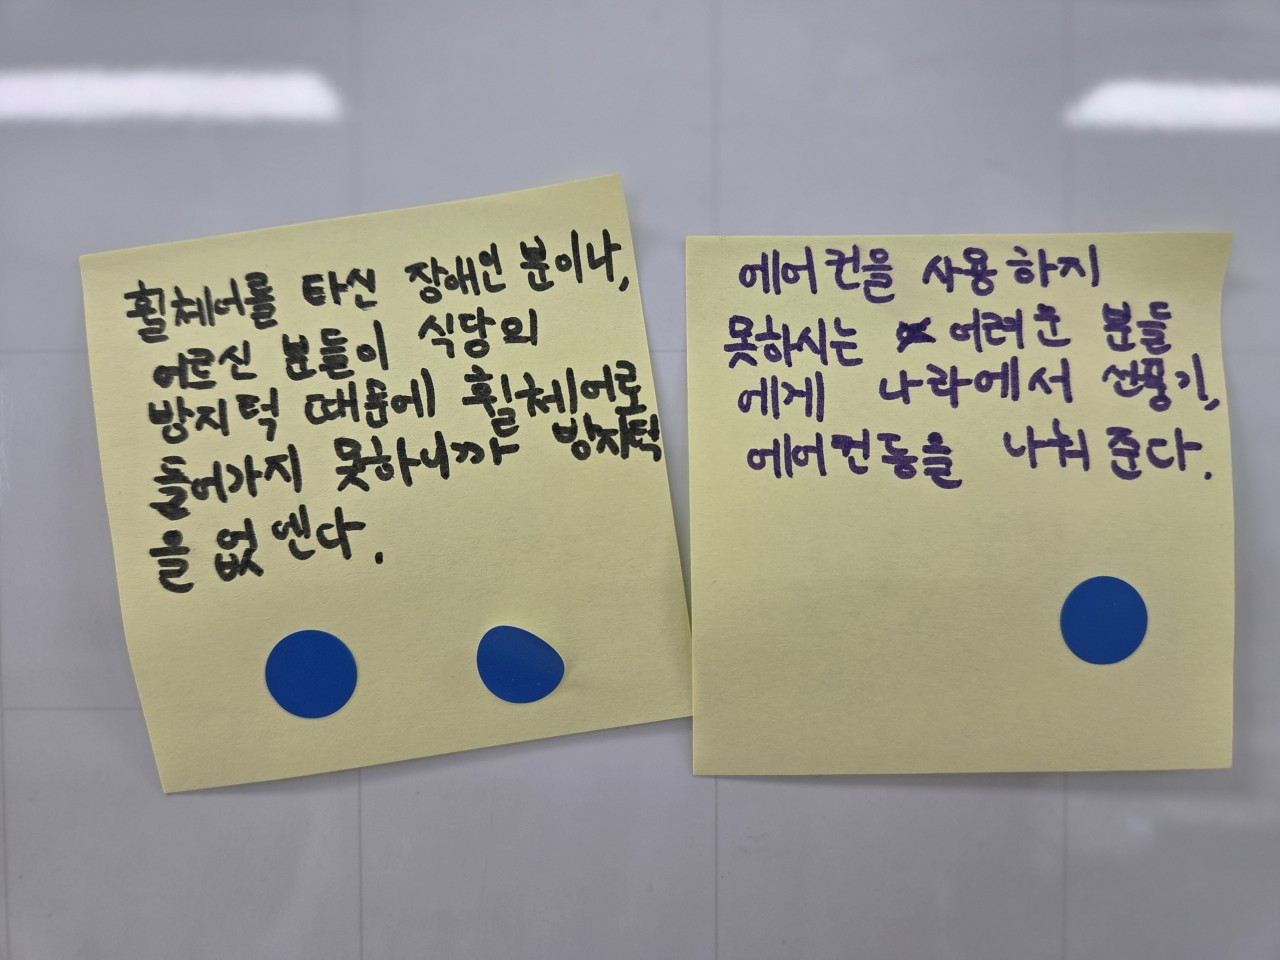 휠체어를 타신 장애인 분이나,
어르신 분들이 식당의
방지턱 때문에 휠체어로
들어가지 못하니까 방지턱
을 없엔다.
에어컨을 사용하지
못하시는 어려운 분들
에게 나라에서 선풍기,
에어컨등을 나눠 준다.